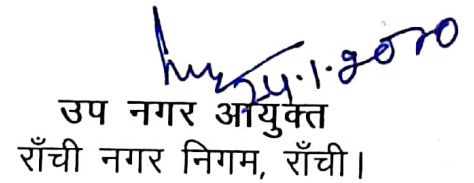 24.1.2020
उप नगर आयुक्त
राँची नगर निगम, राँची।